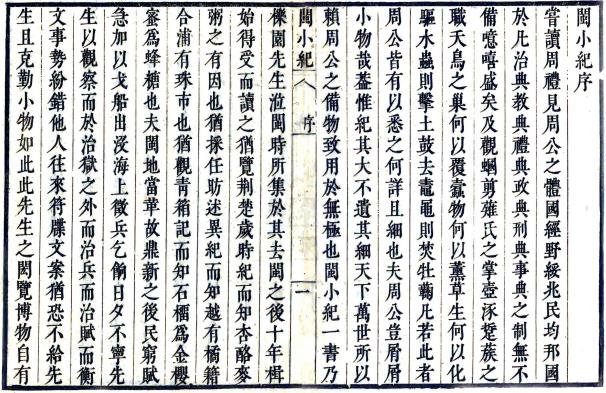 閩小紀序
嘗讀周禮見周公之體國經野綏兆民均邦國
於凡治典教典禮典政典刑典事典之制無不
備噫嘻盛矣及觀蟈剪薙氏之掌壺涿硩蔟之
職夭鳥之巢何以覆蠹物何以薰草生何以化
驅水蟲則擊土鼓去鼃黽則焚牡蘜凡若此者
周公皆有以悉之何詳且細也夫周公豈屑屑
小物哉蓋惟紀其大不遺其細天下萬世所以
賴周公之備物致用於無極也閩小紀一書乃
閩小紀 序 一
櫟園先生涖閩時所集於其去閩之後十年楫
始得受而讀之猶覽荆楚歲時紀而知杏酪麥
粥之有因也猶採任昉述異紀而知越有橘籍
合浦有珠市也猶觀青箱記而知石榴爲金櫻
蜜爲蜂糖也夫閩地當革故鼎新之後民窮賦
急加以戈船出沒海上徵兵乞餉日夕不寧先
生以觀察而於治獄之外而治兵而治賦而衡
文事勢紛錯他人往來符牒文案猶恐不給先
生且克勤小物如此此先生之閎覽博物自有